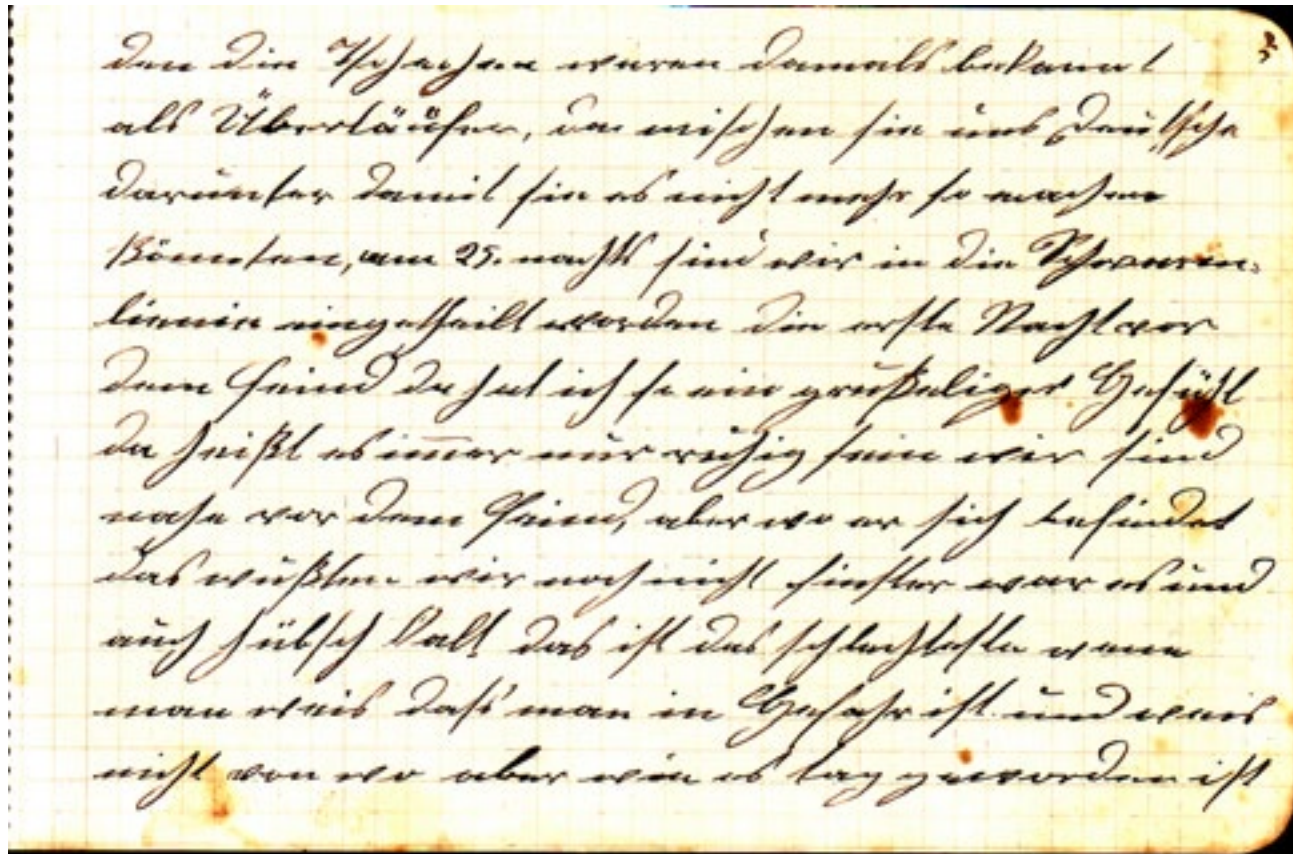 3
den die Tschechen waren damals bekannt
als Überläufer, da mischen sie uns Deutsche
darunter damit sie es nicht mehr so machen
könnten, am 25. nachts sind wir in die Schwarm-
linie eingetheilt worden die erste Nacht vor
dem Feind da hat ich so ein grußeliger Gefühl
da heißt es immer nur ruhig sein wir sind
nahe vor dem Feind, aber wo er sich befindet
das wußten wir noch nicht finster war es und
auch hübsch kalt das ist das schlechteste wenn
man weis dass man in Gefahr ist und weis
nicht von wo aber wie es tag geworden ist